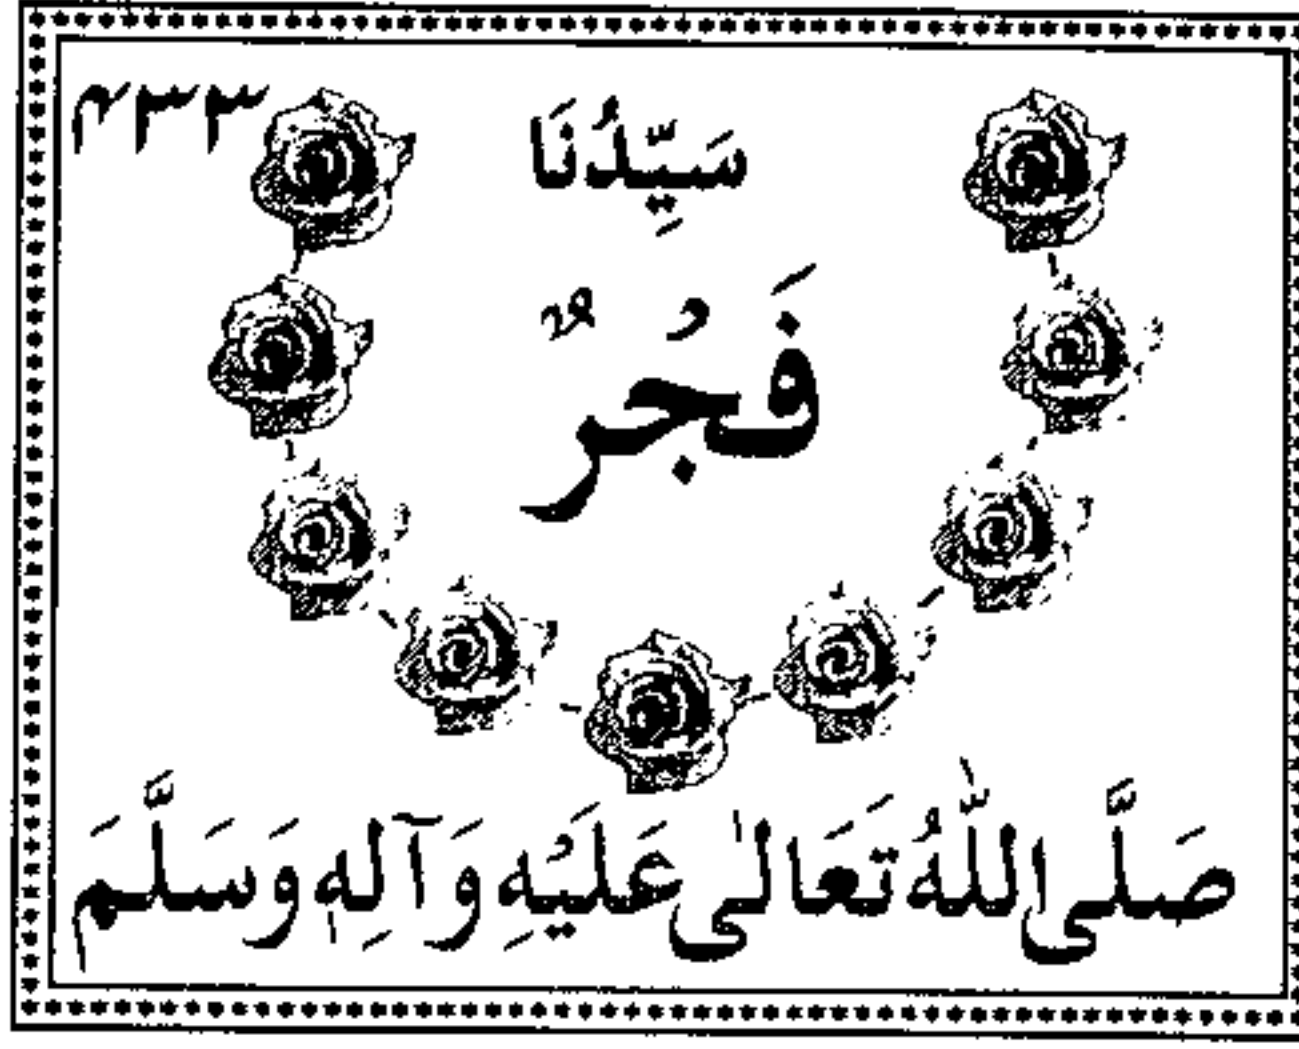 ۴۳۳
سَيِّدُنَا
فَجْرٌ
صَلَّى اللّٰهُ تَعَالٰى عَلَيْهِ وَآلِهٖ وَسَلَّمَ